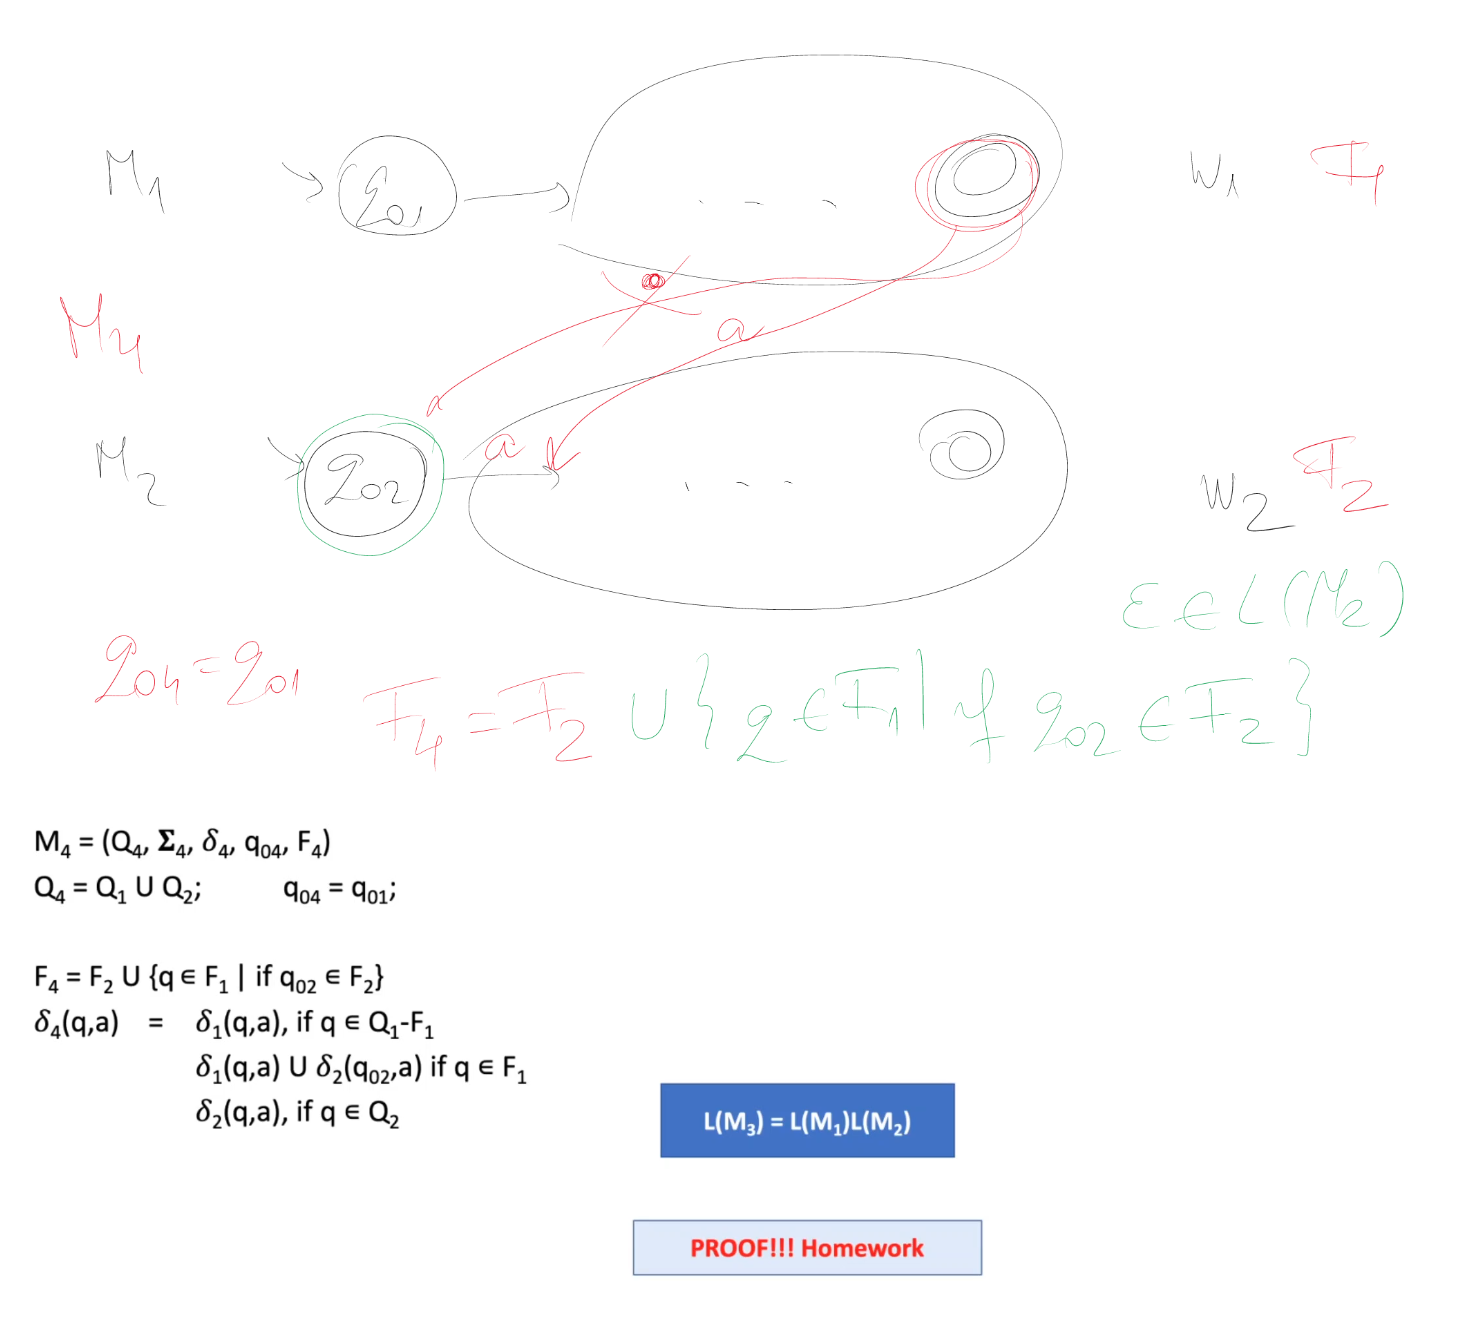 M₁ q₀₁ W₁ F₁
M₄ a
M₂ q₀₂ a W₂ F₂
ε ∈ L(M₂)
q₀₄ = q₀₁ F₄ = F₂ ∪ { q ∈ F₁ | if q₀₂ ∈ F₂ }
M₄ = (Q₄, Σ₄, δ₄, q₀₄, F₄)
Q₄ = Q₁ U Q₂; q₀₄ = q₀₁;
F₄ = F₂ U {q ∈ F₁ | if q₀₂ ∈ F₂}
δ₄(q,a) = δ₁(q,a), if q ∈ Q₁-F₁
δ₁(q,a) U δ₂(q₀₂,a) if q ∈ F₁
δ₂(q,a), if q ∈ Q₂
L(M₃) = L(M₁)L(M₂)
PROOF!!! Homework